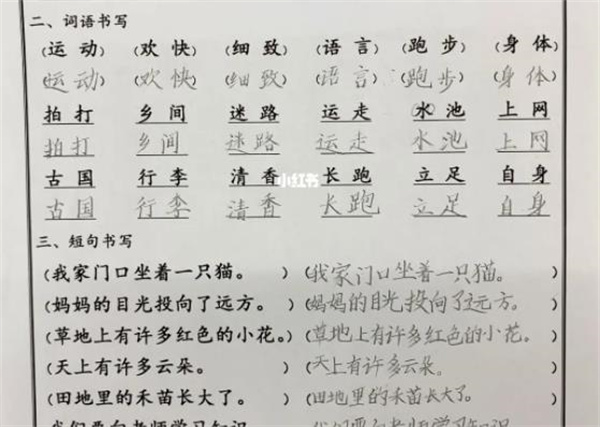 二、词语书写
(运动) (欢快) (细致) (语言) (跑步) (身体)
(运动) (欢快) (细致) (语言) (跑步) (身体)
拍打 乡间 迷路 运走 水池 上网
拍打 乡间 迷路 运走 水池 上网
古国 行李 清香 长跑 立足 自身
小红书
古国 行李 清香 长跑 立足 自身
三、短句书写
(我家门口坐着一只猫。 ) (我家门口坐着一只猫。 )
(妈妈的目光投向了远方。 ) (妈妈的目光投向了远方。 )
(草地上有许多红色的小花。) (草地上有许多红色的小花。 )
(天上有许多云朵。 ) (天上有许多云朵。 )
(田地里的禾苗长大了。 ) (田地里的禾苗长大了。 )
我们要向老师学习知识 我们要向老师学习知识